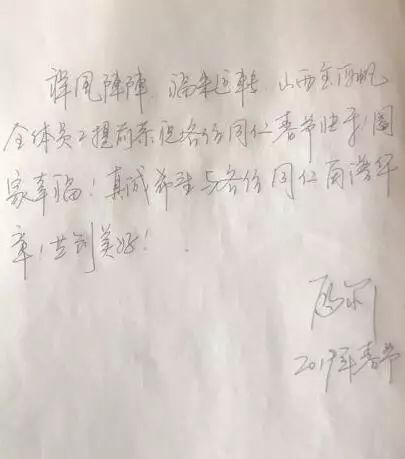 祥风阵阵 福来运转 山西
全体员工提前恭祝各位同仁春节快乐!阖
家幸福!真诚希望与各位同仁再谱华
章,共创美好!
2019年春节